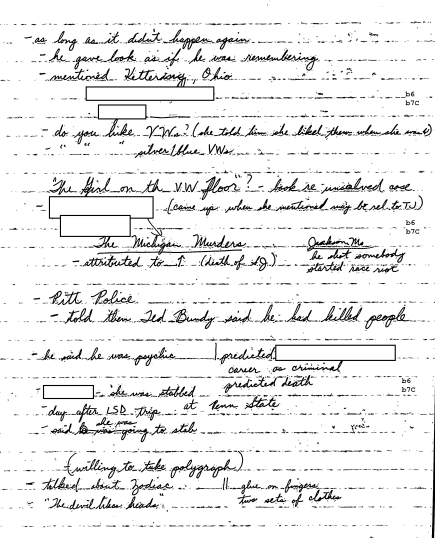 - as long as it didn't happen again
- he gave look as if he was remembering
- mentioned Kettering, Ohio
b6
b7C
- do you like V.W.s? (she told him she liked them when she was)
- " " " silver/blue VWs
"The Girl on the V.W. floor"? - book re unsolved case
(came up when she mentioned may be rel. to TJ)
b6
b7C
- The Michigan Murders
- attributed to ↑ (death of
Jackson Mo
he shot somebody
started race riot
- Pitt Police
- told them Ted Bundy said he had killed people
- he said he was psychic | predicted
career as criminal
predicted death
- she was stabbed
at Penn State
b6
b7C
- day after LSD trip
- said she was going to stab
(willing to take polygraph)
- talked about Zodiac || glue on fingers
- "The devil likes heads" two sets of clothes